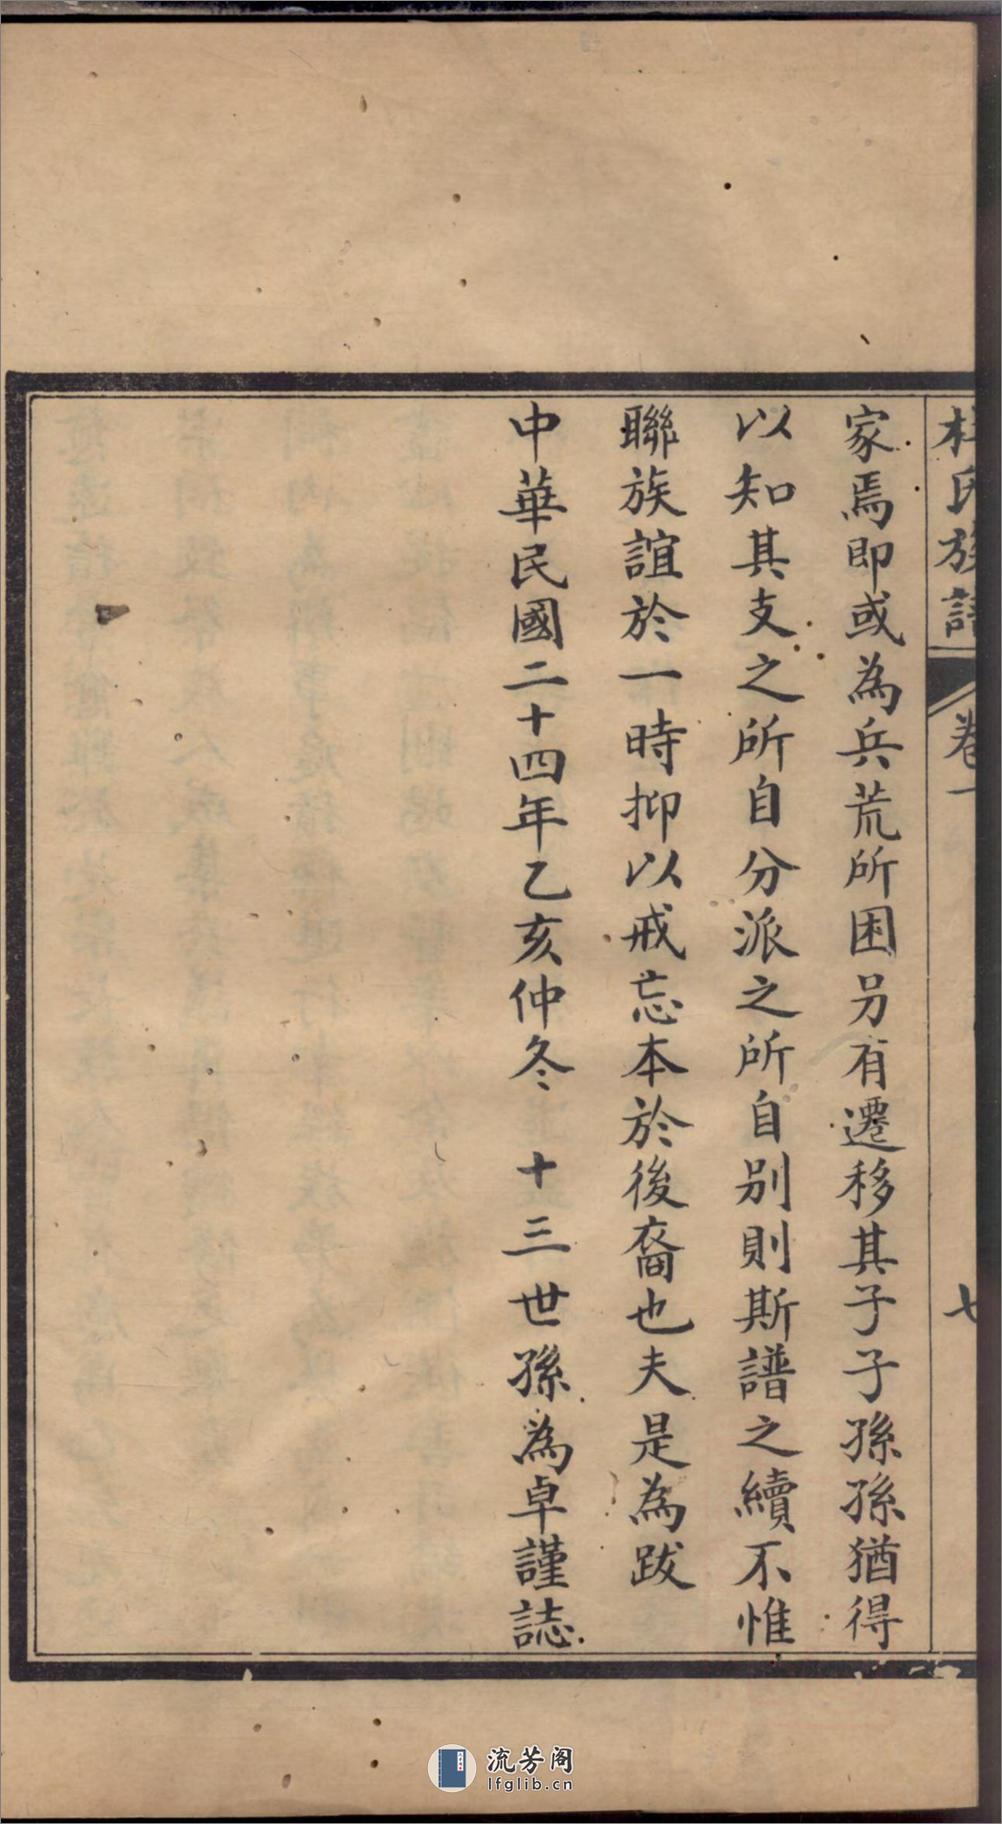 杜氏族譜 卷一 七
家焉即或為兵荒所困另有遷移其子子孫孫猶得
以知其支之所自分派之所自別則斯譜之續不惟
聯族誼於一時抑以戒忘本於後裔也夫是為跋
中華民國二十四年乙亥仲冬 十三世孫為卓謹誌
流芳阁
lfglib.cn